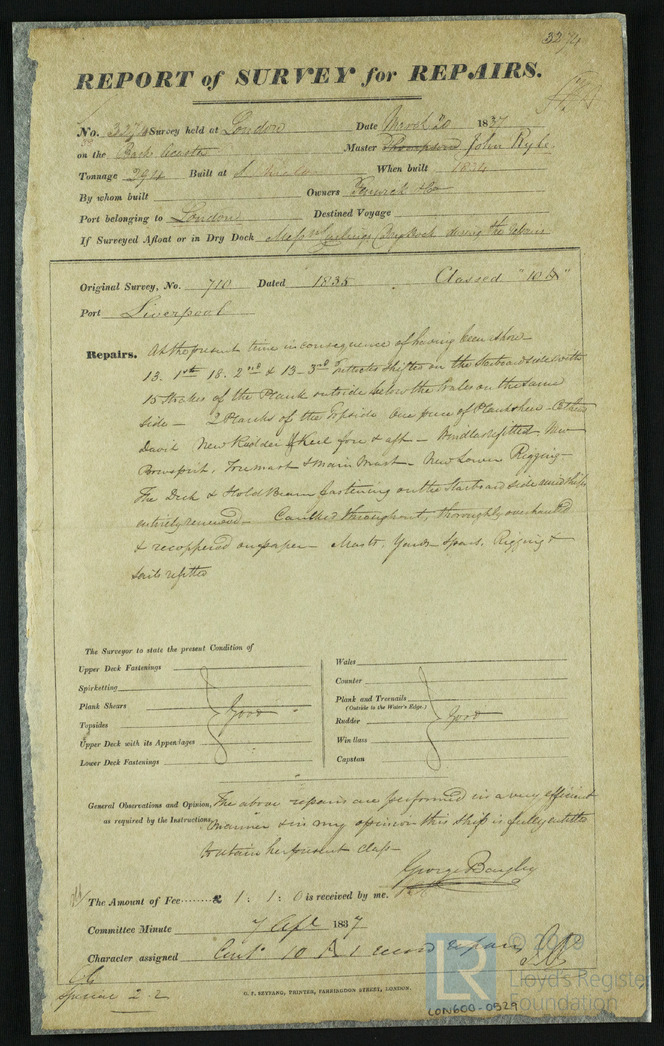 3274
REPORT of SURVEY for REPAIRS.
No. 3274 Survey held at London Date March 20 1837
on the Bark Master Thompson John Ryle
Tonnage 294 Built at When built
By whom built Owners Fenwick & Co
Port belonging to London Destined Voyage
If Surveyed Afloat or in Dry Dock Mess Dry Dock during the repairs
Original Survey, No. 710 Dated 1835 Classed "10 A"
Port Liverpool
Repairs. At the present time in consequence of having been on shore
13. 1st 18. 2nd & 13-3rd Futtocks shifted on the Starboard side with
15 strakes of the Plank outside below the Wales on the same
side — 2 Planks of the Topside One piece of Planksheer
David New Rudder & Keel fore & aft — Windlass refitted New
Bowsprit, Foremast & Main Mast — New Lower Rigging —
The Deck & Hold Beam fastening on the Starboard side midships
entirely renewed — Caulked throughout, thoroughly overhauled
& recoppered on paper — Masts, Yards Spars, Rigging &
Sails refitted
The Surveyor to state the present Condition of
Upper Deck Fastenings
Spirketting
Plank Shears
Topsides
Upper Deck with its Appendages
Lower Deck Fastenings
Good
Wales
Counter
Plank and Treenails
(Outside to the Water's Edge.)
Rudder
Windlass
Capstan
Good
General Observations and Opinion, The above repairs are performed in a very efficient
as required by the Instructions. manner & in my opinion this ship is fully entitled
to retain her present class —
George Bayley
The Amount of Fee £ 1 : 1 : 0 is received by me.
Committee Minute 7 Apl 1837
Character assigned 10 A 1 record repairs
special 2 . 2
G. F. SEYFANG, PRINTER, FARRINGDON STREET, LONDON.
LON600-0529
LR
© 2019
Lloyd's Register
Foundation